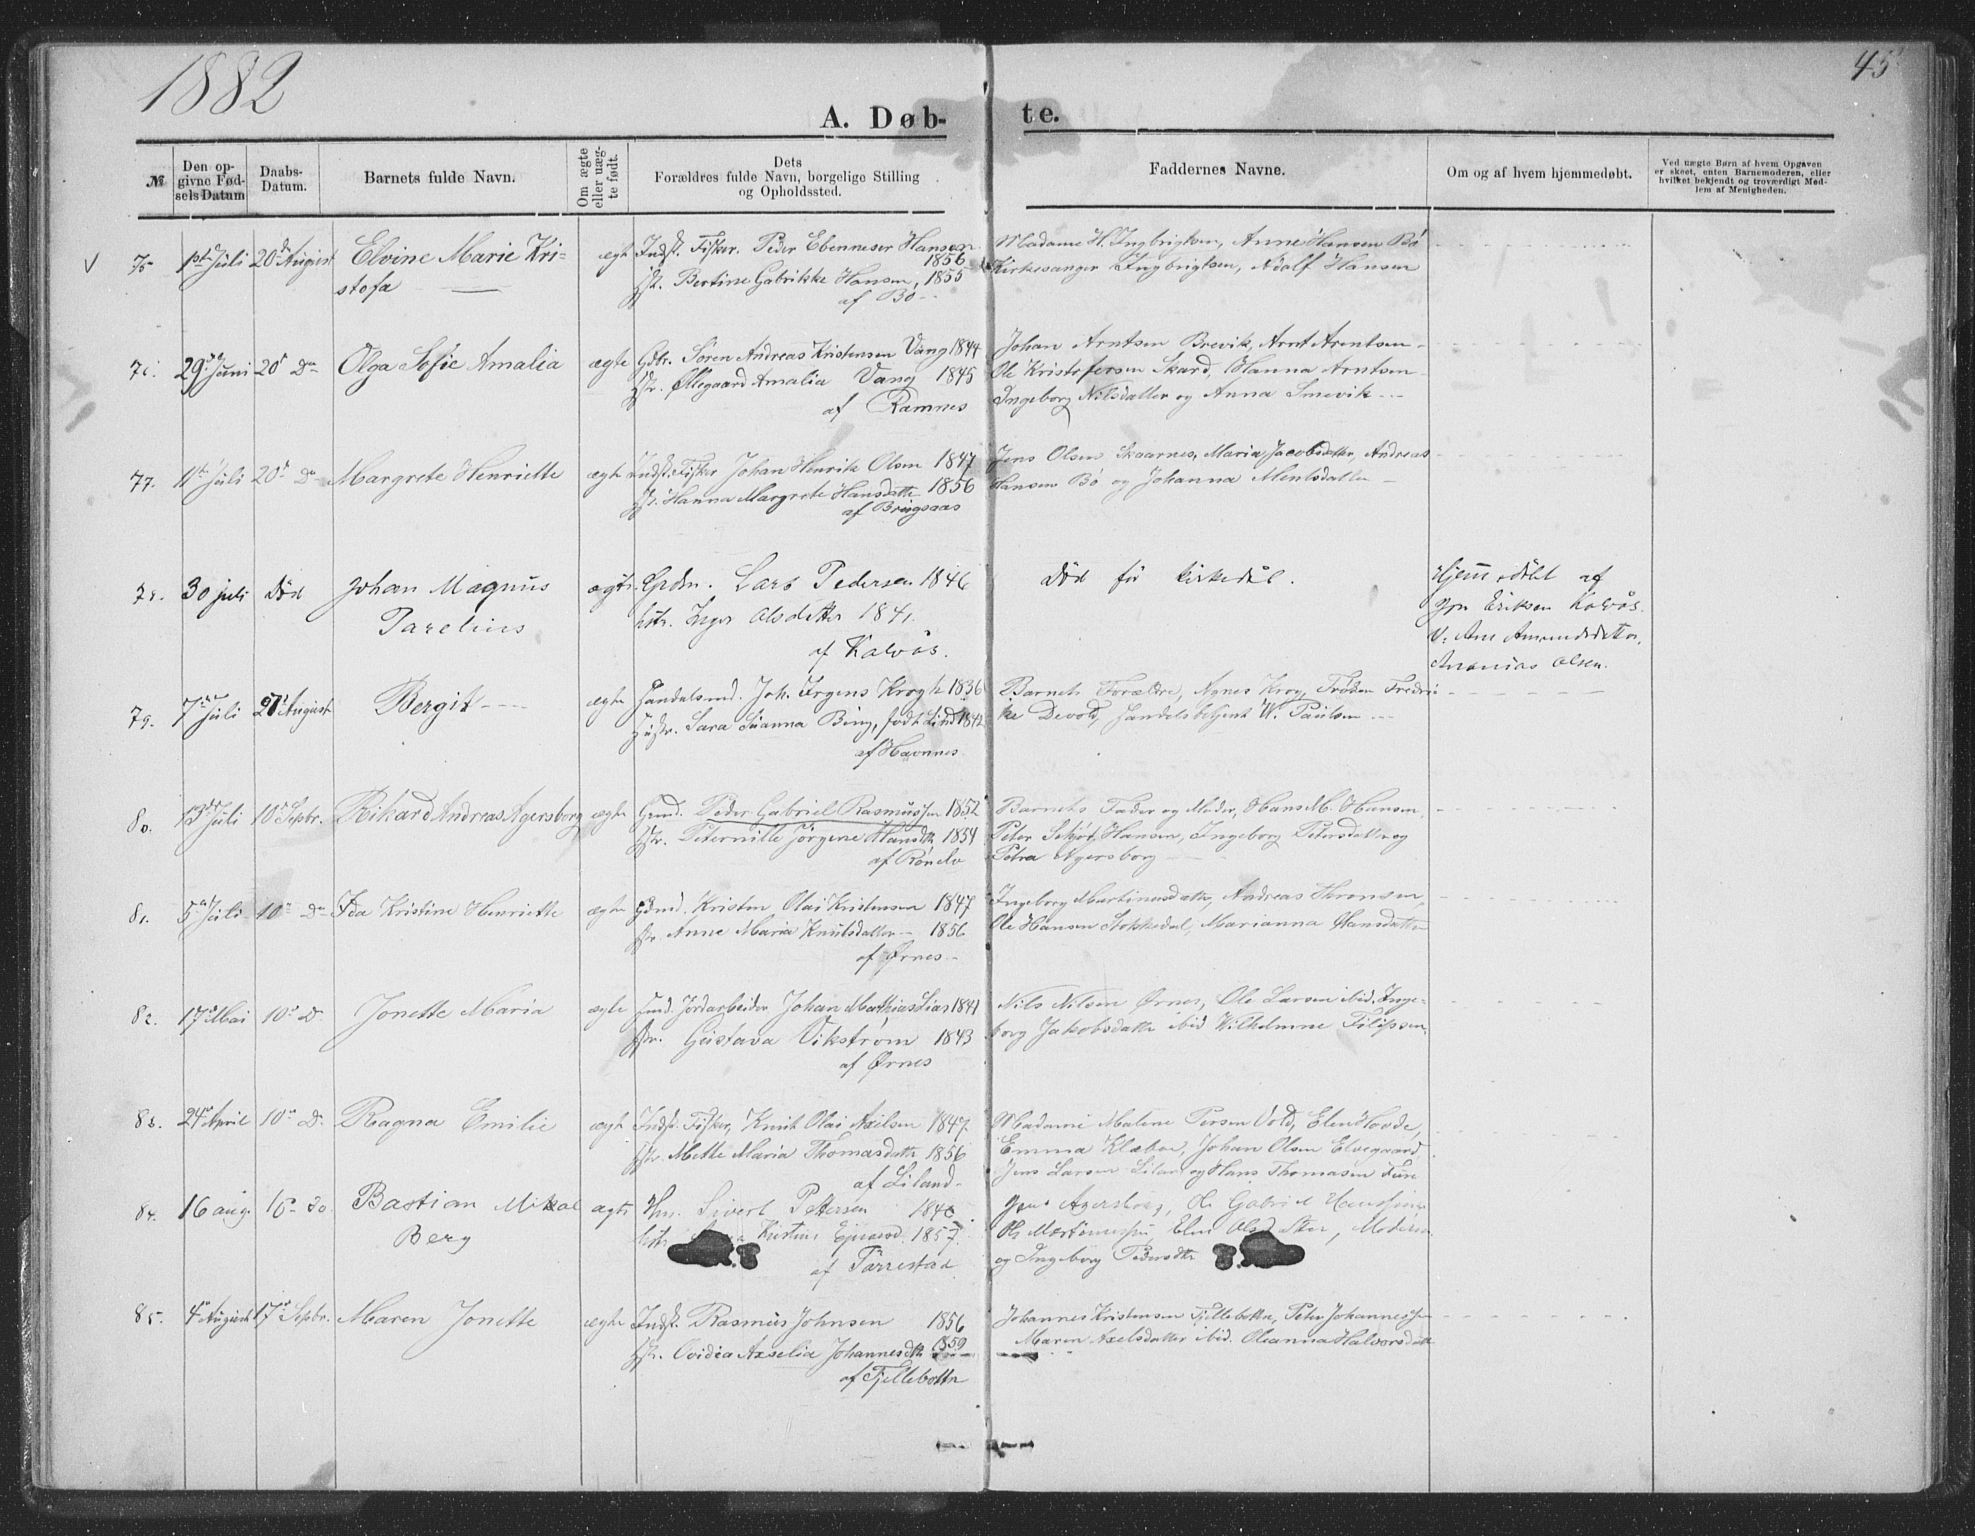 1882
45
A. Døb-
te.
№
Den op-
givne Fød-
sels Datum
Daabs-
Datum.
Barnets fulde Navn.
Om ægte
eller uæg-
te født.
Dets
Forældres fulde Navn, borgelige Stilling
og Opholdssted.
Faddernes Navne.
Om og af hvem hjemmedøbt.
Ved uægte Børn af hvem Opgaven
er skeet, enten Barnemoderen, eller
hvilket bekjendt og troværdigt Med-
lem af Menigheden.
V 75 1ste Juli 20de August Elvine Marie Kri-
stofa
ægt Indst. Fisker. Peder Ebenneser Hansen
1856
Hstr. Bertine Gabrikke Hansen, 1855
af Bø
Madame H. Ingbrigtsen, Anne Hansen Bø
Kirkesanger Ingbrigtsen, Adolf Hansen
76. 29de Juni 20d Do Olga Sofie Amalia
ægte Gdbr. Søren Andreas Kristensen Vang 1844
Hstr. Øllegaard Amalia Vang 1845
af Ramnes
Johan Arntsen Brevik, Arnt Arentsen
Ole Kristofersen Skard, Hanna Arntsen
Ingeborg Nilsdatter og Anna Smevik
77. 11te Juli 20d Do Margrete Henriette
ægte Indst. Fisker Johan Henrik Olsen 1847
Hstr. Hanna Margrete Hansdatte 1856
af Bringsaas
Jens Olsen Skaarnes, Maria Jacobsdatter, Andreas
Hansen Bø og Johanna Mentsdatter
78. 30 juli død Johan Magnus
Parelius
ægte Grdm. Lars Pedersen 1846
hstr. Inger Olsdatter 1841
af Kalvås.
død før kirkedåb.
Hjemmedøbt af
Jon Eriksen Kalvås.
v: Ane
Ananias Olsen.
79. 7de Juli 27d August Bergit
ægte Handelsmd. Joh. Irgens Krogh 1836
Hustr. Sara Susanna Bing, født Lind 1842
af Havnnes
Barnets Forældre, Agnes Krog, Frøken Fredri
ke Devold, Handelsbetjent W. Paulsen
80. 13de Juli 10d Sepbr. Rikard Andreas Agersborg
ægte Gmd. Peder Gabriel Rasmussen 1852
Hstr. Peternille Jørgine Hansdtr 1854
af
Barnets Fader og Moder, Hans M. Hansen
Peter Hansen, Ingeborg Petersdatter og
Petra Agersborg
81. 5te Juli 10de Do Ida Kristine Henriette
ægte Gdmd. Kristen Olai Kristensen 1847
Hstr. Anne Maria Knutsdatter 1856
af Ørnes
Ingeborg Martinusdattr, Andreas Thronsen
Ole Hansen Stokkedal, Marianna Hansdatter
82. 17de Mai 10d D. Jonette Maria
ægte Jordarbeider Johan Mathias Lias 1841
Hstr. Gustava Vikstrøm 1843
af Ørnes
Nils Nilsen Ørnes, Ole Larsen ibid, Inge-
borg Jakobsdattr ibid Wilhelmine Filipsen
83. 24de April 10de D. Ragna Emilie
ægte Indst. Fisker, Knut Olai Axelsen 1847
Hstr. Mette Maria Thomasdattr 1856
af Liland
Madame Malene Persen Vold, Elen Hovde,
Emma Klæboe, Johan Olsen Elvegaard
Jens Larsen Liland og Hans Thomasen
84. 16 aug. 16 do. Bastian Mikal
Berg
ægte Sivert Pettersen 1840
hstr. Kristine 1857
af Tårrestad
Agersborg, Ole Gabriel
Ole Elen Olsdatter, Moderen
og Ingeborg Pedersdtr
85. 4de August 17de Sepbr. Maren Jonette
ægte Indst. Rasmus Johnsen 1856
Hstr. Ovidia Axselia Johannesdtr 1859
af Fjellebotten
Johannes Kristensen Fjellebotten, Peter Johannessen
Maren Axelsdatter ibid. Oleanna Halvorsdatt